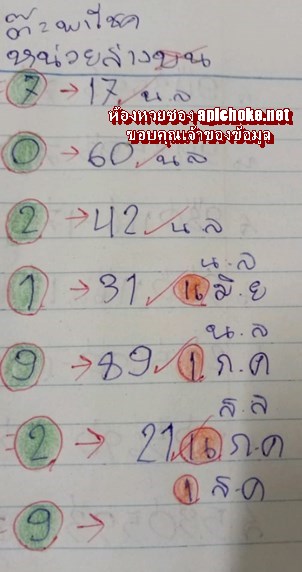 ต๊ะ พาโชค
หน่วยล่างบน
7 → 17 น ล
ห้องหวยซอง apichoke.net
ขอบคุณเจ้าของข้อมูล
0 → 60 น ล
2 → 42 น ล
น.ล
1 → 31 16 มิ.ย
น.ล
9 → 89 1 ก.ค
ส.ล
= 2 → 21 16 ก.ค
1 ส.ค
= 9 →